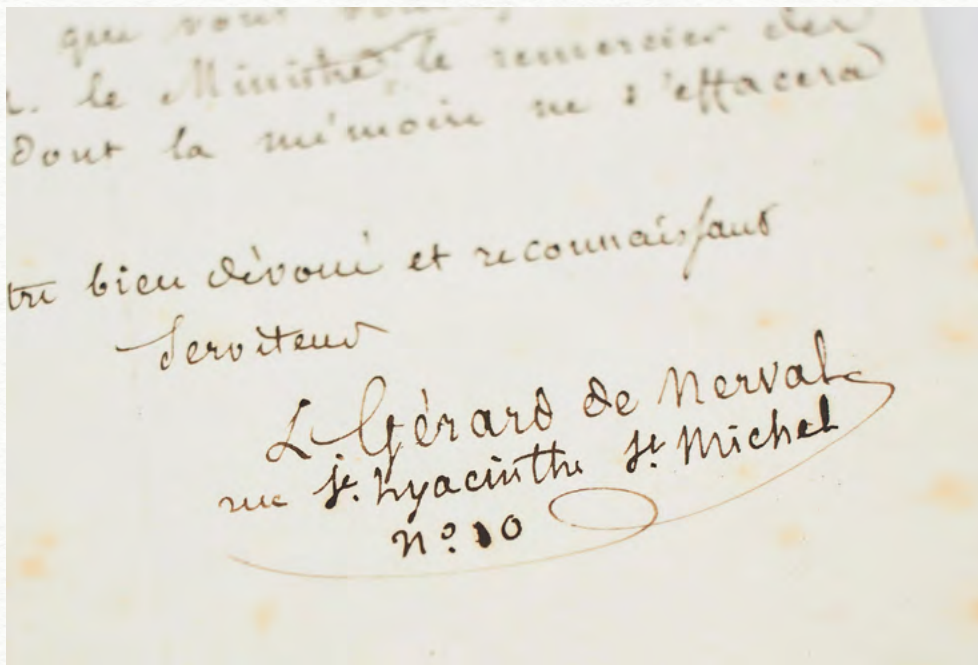 que vous
le Ministre, le remercier des
dont la mémoire ne s'effacera
tre bien dévoué et reconnaissant
Serviteur
L. Gérard de Nerval
rue St. Hyacinthe St. Michel
n.º 10